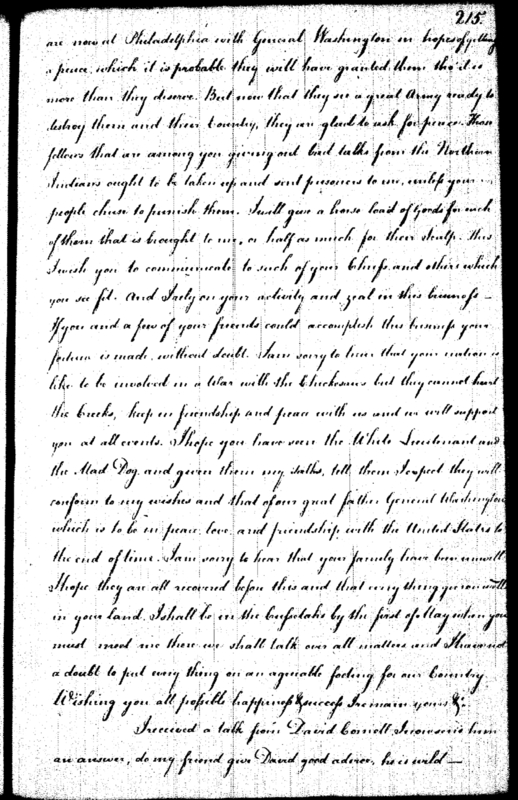 215.
are now at Philadelphia with General Washington in hopes of getting
a peace, which it is probable they will have granted them tho' it is
more than they deserve. But now that they see a great Army ready to
destroy them and their Country, they are glad to ask for peace. Those
fellows that are among you giving out bad talks from the Northern
Indians ought to be taken up and sent prisoners to me, unless your
people chuse to punish them. I will give a horse load of Goods for each
of them that is brought to me, or half as much for their Scalp. This
I wish you to communicate to such of your Chiefs and others which
you see fit. And I rely on your activity and zeal in this business —
If you and a few of your friends could accomplish this business your
fortune is made, without doubt. I am sorry to hear that your nation is
like to be involved in a War with the Chickasaws but they cannot hurt
the Creeks, keep in friendship and peace with us and we will support
you at all events. I hope you have seen the White Lieutenant and
the Mad Dog and given them my talks, tell them I expect they will
conform to my wishes and that of our great father General Washington
which is to be in peace, love, and friendship with the United States to
the end of time. I am sorry to hear that your family have been unwell
I hope they are all recovered before this and that every thing is well
in your land. I shall be in the by the first of May when you
must meet me there we shall talk over all matters and I have not
a doubt to put every thing on an agreable footing for our Country
Wishing you all possible happiness & success I remain yours &c.
I received a talk from David Cornell. I now send him
an answer, do my friend give David good advice, he is wild —